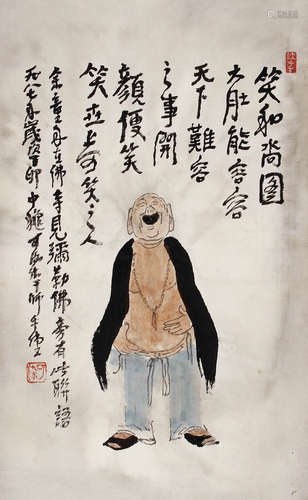 笑和尚图
大肚能容容
天下難容
之事開
顏便笑
笑世上可笑之人
余童年在佛寺見彌勒佛旁有此聯語
一九八七年歲丁卯中穐